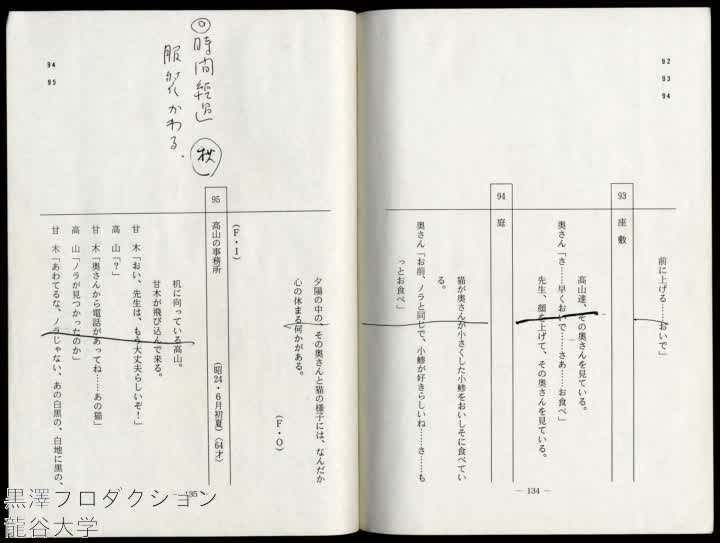 92
93
94
前に上げる……おいで」
93
座敷
高山達、その奥さんを見ている。
奥さん「さ……早くおいで……さあ……お食べ」
先生、顔を上げて、その奥さんを見ている。
94
庭
猫が奥さんが小さくした小鯵をおいしそに食べてい
る。
奥さん「お前、ノラと同じで、小鯵が好きらしいね……さ……も
っとお食べ」
― 134 ―
94
95
◎時間経過 秋
服装かわる。
夕陽の中の、その奥さんと猫の様子には、なんだか
心の休まる何かがある。
(F・O)
(F・I)
95
高山の事務所
(昭24・6月初夏)(64才)
机に向っている高山。
甘木が飛び込んで来る。
甘 木「おい、先生は、もう大丈夫らしいぞ！」
高 山「？」
甘 木「奥さんから電話があってね……あの猫」
高 山「ノラが見つかったのか」
甘 木「あわてるな、ノラじゃない、あの白黒の、白地に黒の、
35 ―
黒澤プロダクション
龍谷大学